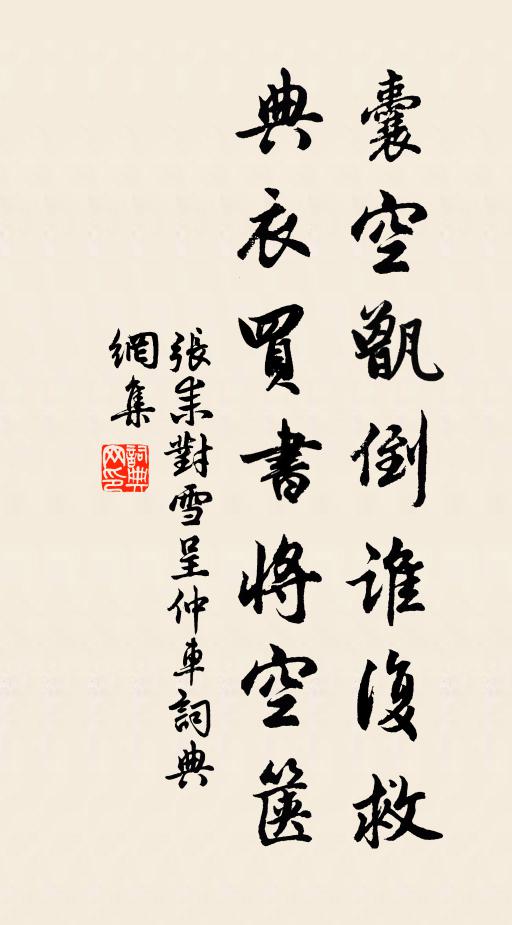 囊空甑倒誰復救
典衣買書將空篋
張耒對雪呈仲車詞典
網集
詞典
网印